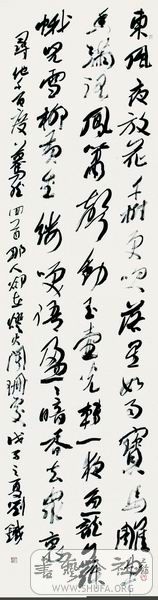 東風夜放花千樹更吹落星如雨寶馬雕車
香滿路鳳簫聲動玉壺光轉一夜魚龍舞
蛾兒雪柳黃金縷笑語盈〻暗香去眾裏
尋他千百度驀然回首那人却在燈火闌珊處戊子之夏劉鐵
WWW.SHUFA.ORG